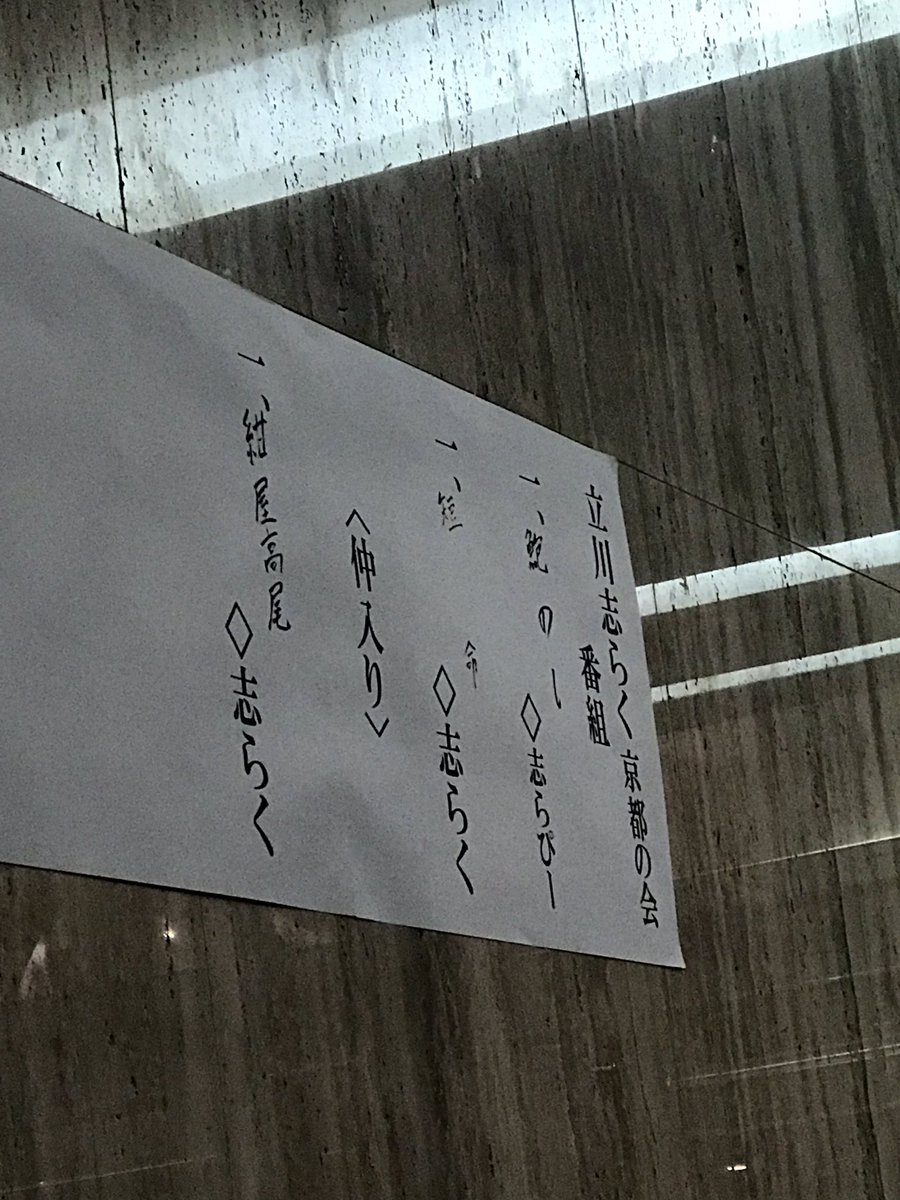 立川志らく京都の会
番組
一、鮑のし ◇志らぴー
一、短命 ◇志らく
〈仲入り〉
一、紺屋高尾 ◇志らく